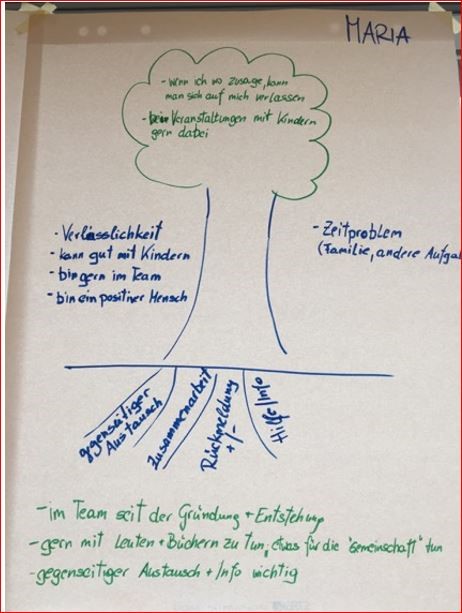 MARIA
- Wenn ich wo zusage, kann
man sich auf mich verlassen
- bei Veranstaltungen mit Kindern
gern dabei
- Verlässlichkeit
- kann gut mit Kindern
- bin gern im Team
- bin ein positiver Mensch
- Zeitproblem
(Familie, andere Aufgab
gegenseitiger
Austausch
Zusammenarbeit
Rückmeldung
+/-
Hilfe/Info
- im Team seit der Gründung + Entstehung
- gern mit Leuten + Büchern zu tun, etwas für die "Gemeinschaft" tun
- gegenseitiger Austausch + Info wichtig